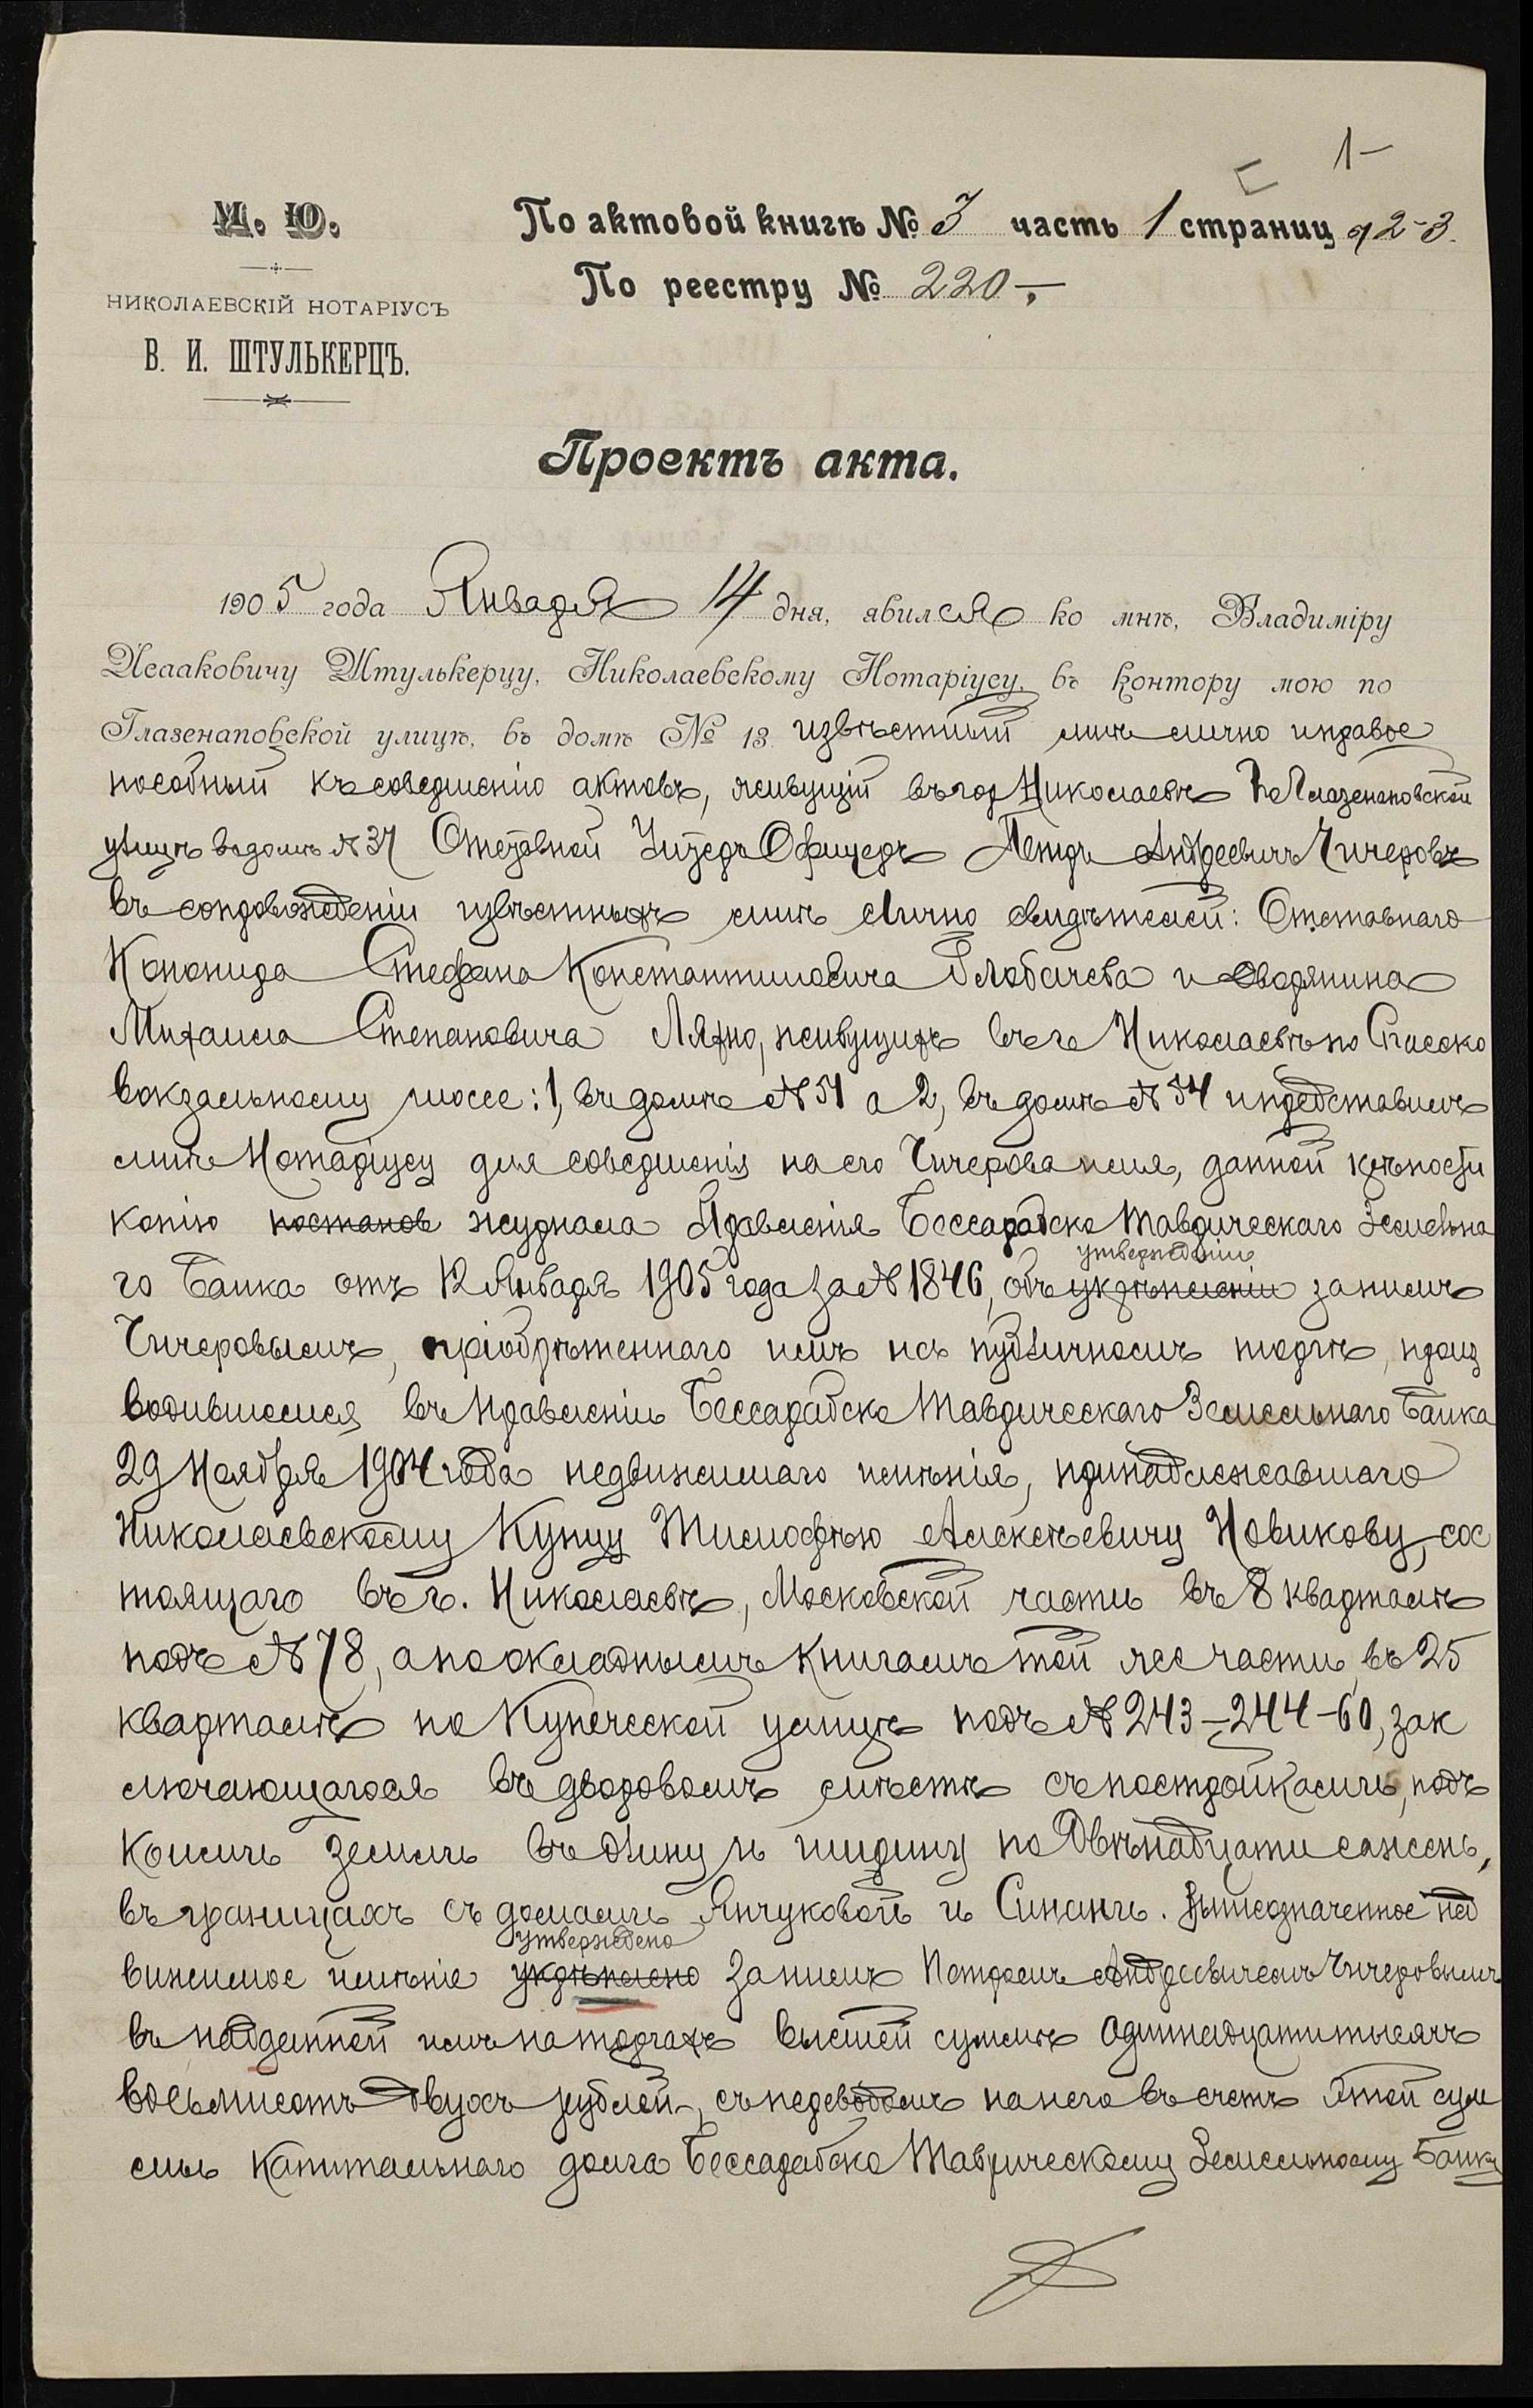 1-
М. Ю.
По актовой книгѣ № 3 часть 1 страниц 92-3.
По реестру № 220-,
НИКОЛАЕВСКІЙ НОТАРІУСЪ
В. И. ШТУЛЬКЕРЦЪ.
Проектъ акта.
1905 года Января 14 дня, явился ко мнѣ, Владиміру
Исааковичу Штулькерцу, Николаевскому Нотаріусу, въ контору мою по
Глазенаповской улицѣ, въ домѣ № 13 извѣстный мнѣ лично и право
пособный къ совершенію актовъ, живущій въ гор Николаевѣ по Глазенаповской
улицѣ въ домѣ № 37 Отставной Унтеръ Офицеръ Петръ Андреевичъ Чичеровъ
въ сопровожденіи извѣстныхъ мнѣ лично свидѣтелей: Отставного
Канонира Стефана Константиновича Глобачева и дворянина
Михаила Степановича Ляхно, живущихъ въ г Николаевѣ по Спасско
вокзальному шоссе: 1, въ домѣ № 51 а 2, въ домѣ № 54 и представилъ
мнѣ Нотаріусу для совершенія на его Чичерова имя, данной крѣпости
копію постанов журнала Правленія Бессарабско Таврическаго Земельна
утвержденіи
го Банка отъ 12 Января 1905 года за № 1846, объ укрѣпленіи за нимъ
Чичеровымъ, пріобрѣтеннаго имъ на публичномъ торгѣ, произ
водившемся въ Правленіи Бессарабско Таврическаго Земельнаго Банка
29 Ноября 1904 года недвижимаго имѣнія, принадлежавшаго
Николаевскому Купцу Тимофѣю Алексѣевичу Новикову, сос
тоящаго въ г. Николаевѣ, Московской части въ 8 кварталѣ
подъ № 78, а по окладнымъ книгамъ той же части въ 25
кварталѣ по Купеческой улицѣ подъ № 243-244-60, зак
лючающагося въ дворовомъ мѣстѣ съ постройками, подъ
коимъ земли въ длину и ширину по Двѣнадцати сажень,
въ границахъ съ домами Янчуковой и Синани. Вышеозначенное нед
утверждено
вижимое имѣніе укрѣплено за нимъ Петромъ Андреевичемъ Чичеровымъ
въ найденной имъ на торгахъ высшей суммѣ одиннадцати тысячъ
восьмисотъ двухъ рублей, съ переводомъ на него въ счетъ этой сум
мы капитальнаго долга Бессарабско Таврическому Земельному Банку